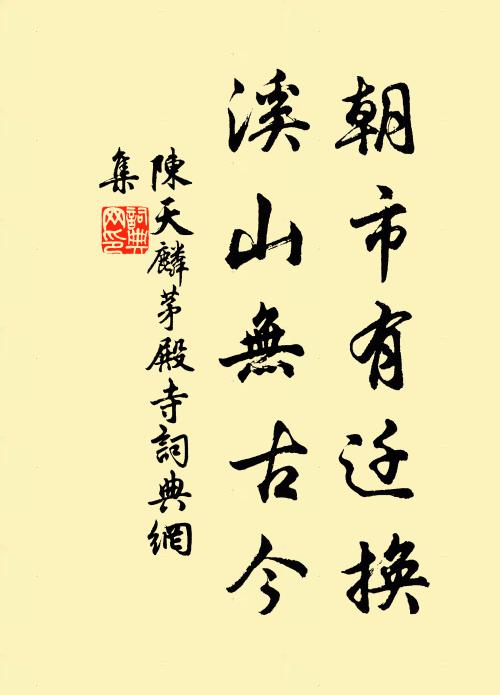 朝市有迁換
溪山無古今
陳天麟茅殿寺詞典網
集
詞典
网印